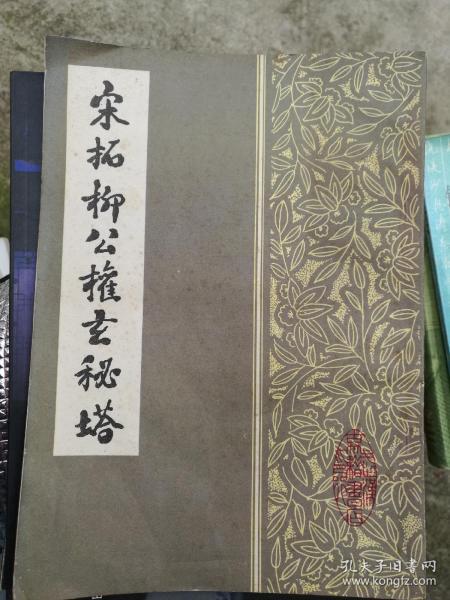 宋拓柳公權玄秘塔
孔夫子旧书网
www.kongfz.com